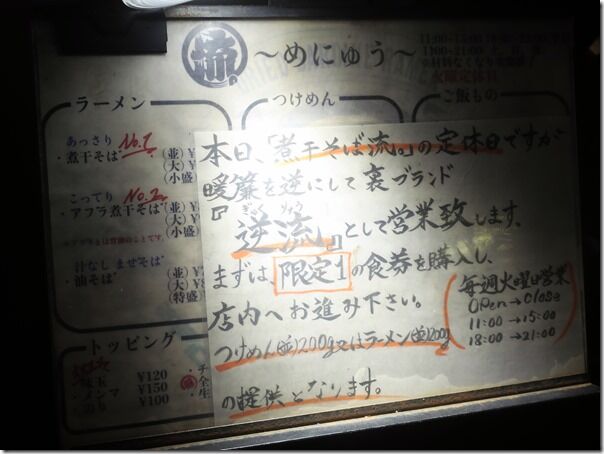 流。
～めにゅう～
11:00～15:00
火曜定休日
ラーメン
つけめん
ご飯もの
あっさり No.1
・煮干そば (並)¥
(大)¥
小盛
こってり No.2
・アブラ煮干そば (並)¥
(大)¥
小盛
汁なし まぜそば
・油そば (並)¥
(大)¥
(特盛)
トッピング
・味玉 ¥120
・メンマ ¥150
・のり ¥100
本日、「煮干そば流。」の定休日ですが
暖簾を逆にして裏ブランド
ぎゃく りゅう
『逆流』として営業致します。
まずは、限定1の食券を購入し、
店内へお進み下さい。
つけめん(並)200g又はラーメン(並)200g
の提供となります。
毎週火曜日営業
OPen→Close
11:00→15:00
18:00→21:00